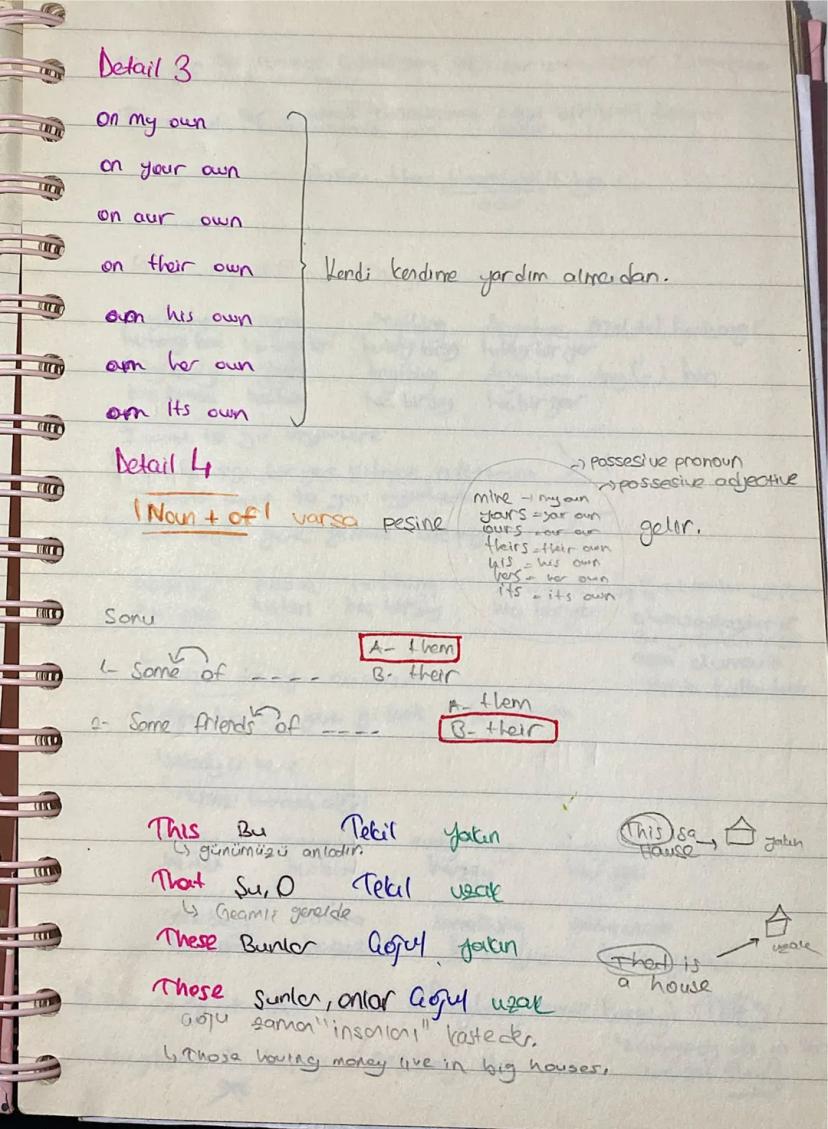 Detail 3
on my own
on your own
on aur own
on their own
on his own
on her own
on its own
Kendi kendime yardım almadan.
Detail 4
→ possesive pronoun
→ possesive adjective
|Noun + of| varsa peşine
mine → my own
yours = your own
ours = our own
theirs = their own
his = his own
hers = her own
its = its own
gelir.
Soru
1- Some of ----
A- them
B- their
2- Some friends of ----
A- them
B- their
This Bu Tekil yakın
↳ günümüzü anlatır.
This is a house → yakın
That Şu, O Tekil uzak
↳ Geçmiş genelde
These Bunlar Çoğul yakın
That is a house
uzak
Those şunlar, onlar Çoğul uzak
Çoğu zaman "insanları" kasteder.
↳ Those having money live in big houses.